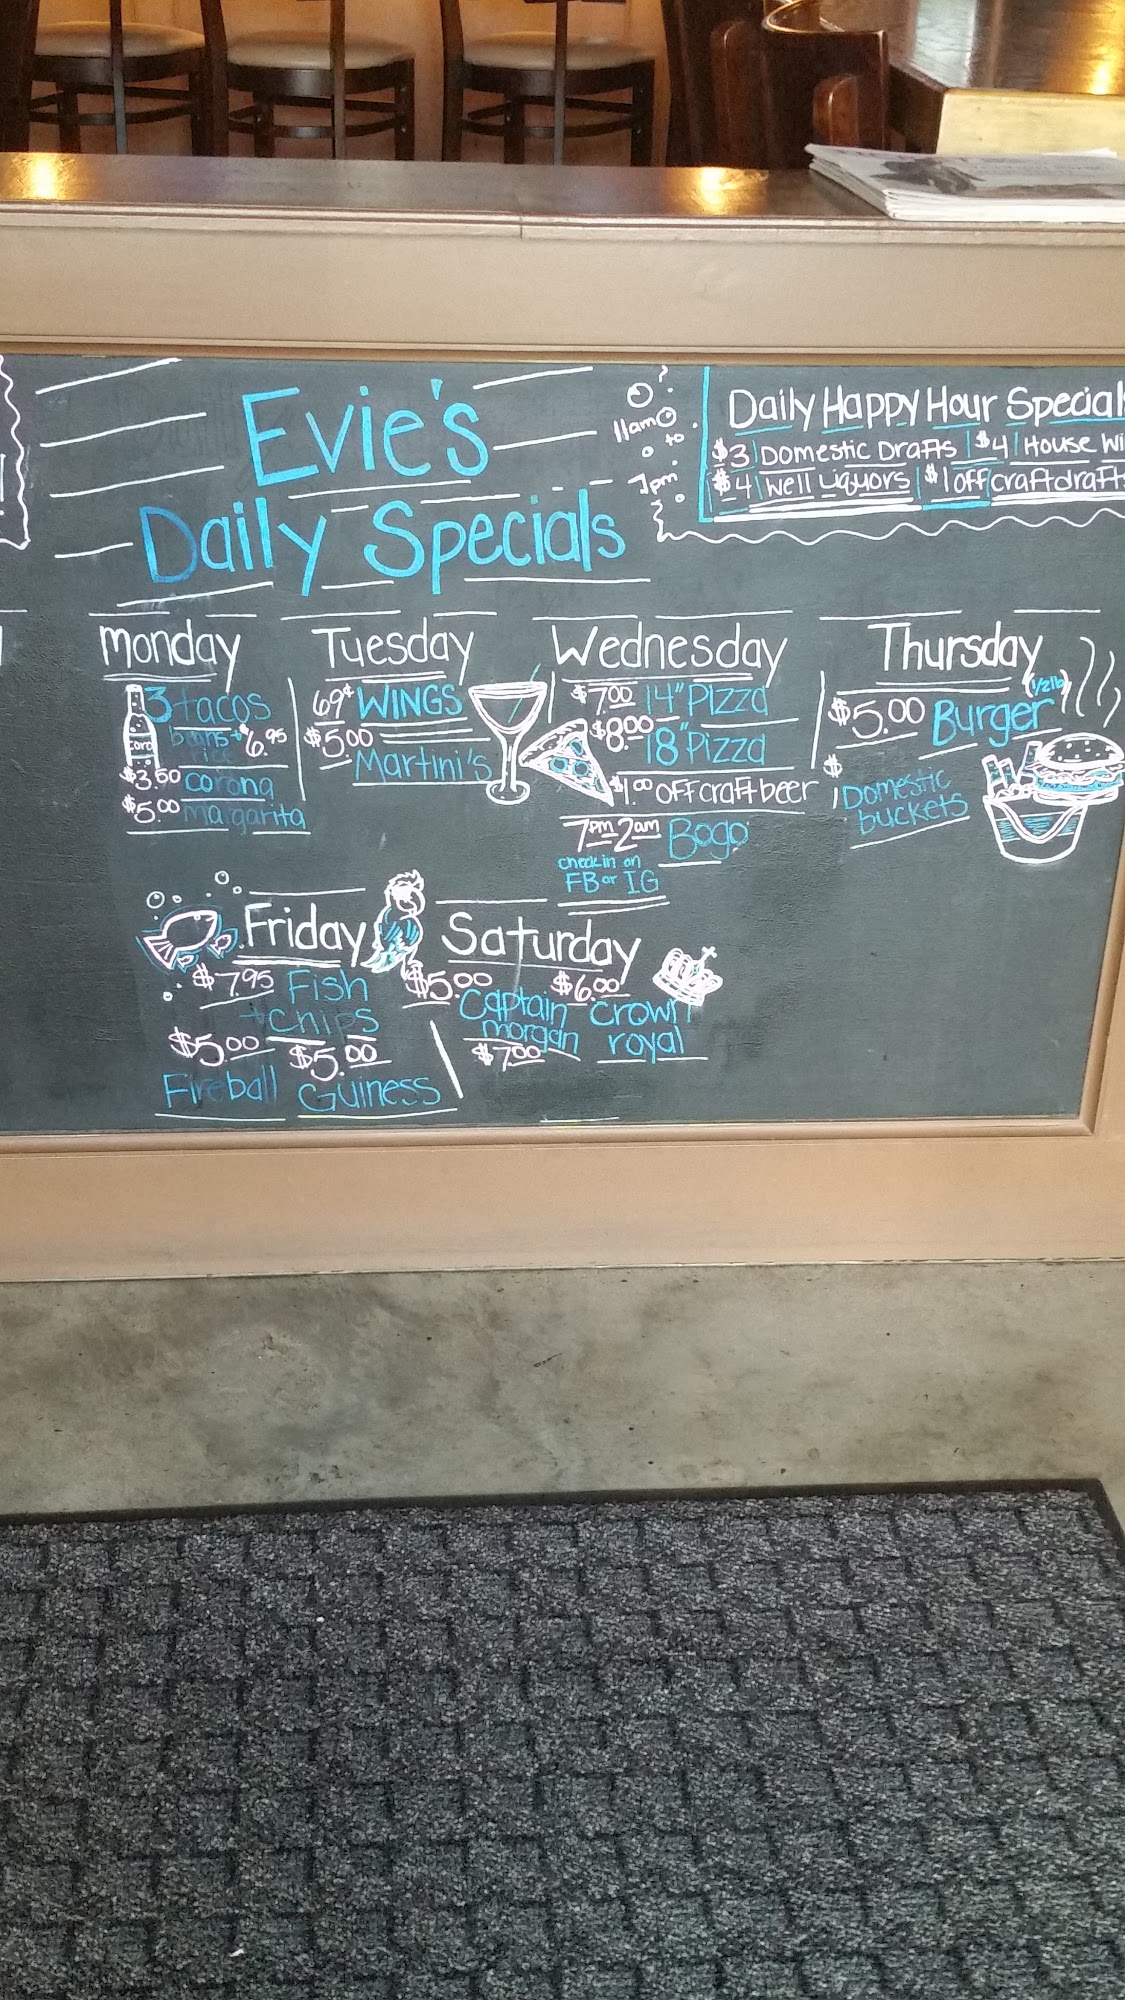 Evie's
Daily Specials
11am
to
7pm
Daily Happy Hour Special
$3 | Domestic Drafts | $4 | House Wi
$4 | Well Liquors | $1 off craft drafts
Monday
3 tacos
beans +
rice $6.95
$3.50 corona
$5.00 margarita
Tuesday
69¢ WINGS
$5.00
Martini's
Wednesday
$7.00 14" Pizza
$8.00 18" Pizza
$1.00 OFF craft beer
7pm-2am Bogo
check in on
FB or IG
Thursday
$5.00 Burger (1/2lb)
$
Domestic
buckets
Friday
$7.95 Fish
+ Chips
$5.00 $5.00
Fireball Guiness
Saturday
$5.00 $6.00
Captain crown
morgan royal
$7.00